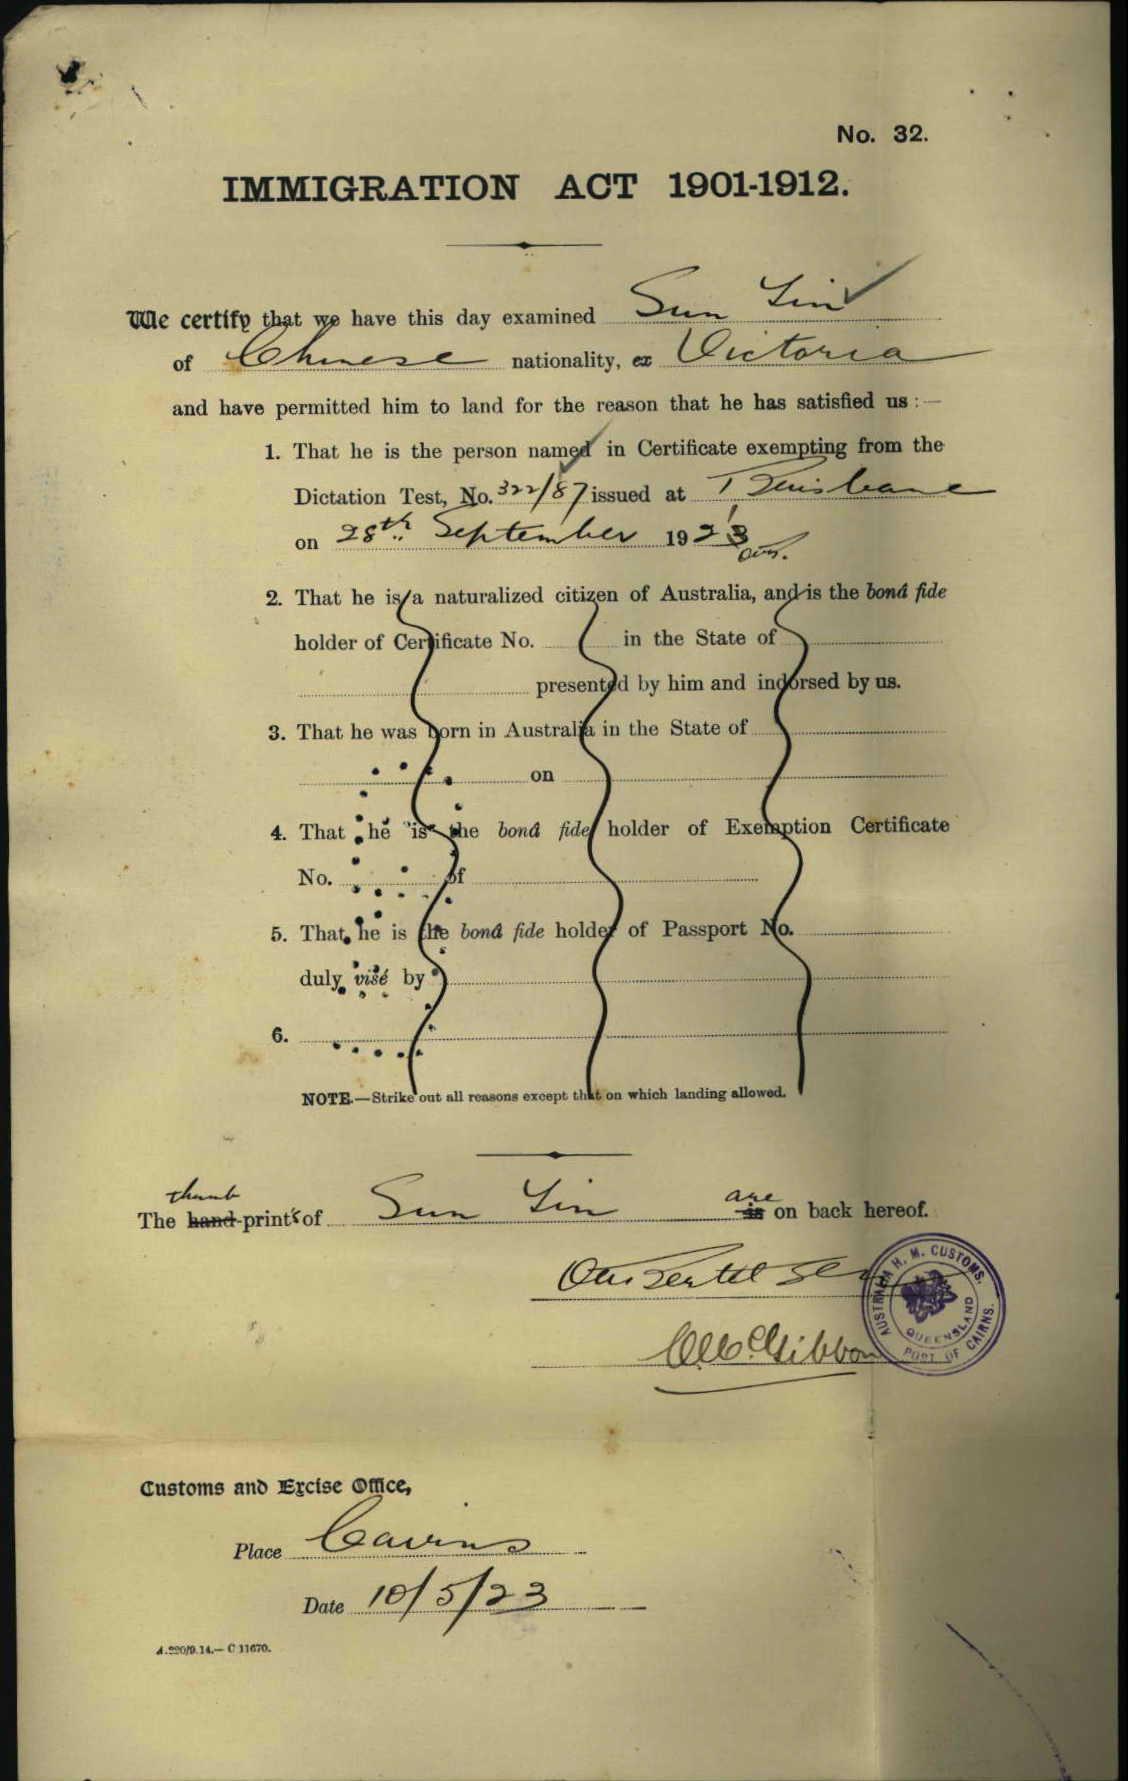 No. 32.
IMMIGRATION ACT 1901-1912.
We certify that we have this day examined Sun Yin
of Chinese nationality, ex Victoria
and have permitted him to land for the reason that he has satisfied us :—
1. That he is the person named in Certificate exempting from the
Dictation Test, No. 322/87 issued at Brisbane
on 28th September 192
2. That he is a naturalized citizen of Australia, and is the bonâ fide
holder of Certificate No. in the State of
presented by him and indorsed by us.
3. That he was born in Australia in the State of
on
4. That he is the bonâ fide holder of Exemption Certificate
No. of
5. That he is the bonâ fide holder of Passport No.
duly visé by
6.
NOTE.—Strike out all reasons except that on which landing allowed.
thumb are
The hand-prints of Sun Yin is on back hereof.
AUSTRALIA H. M. CUSTOMS.
QUEENSLAND
PORT OF CAIRNS.
McGibbon
Customs and Excise Office,
Place Cairns
Date 10/5/23
A.220/9.14.— C 11670.